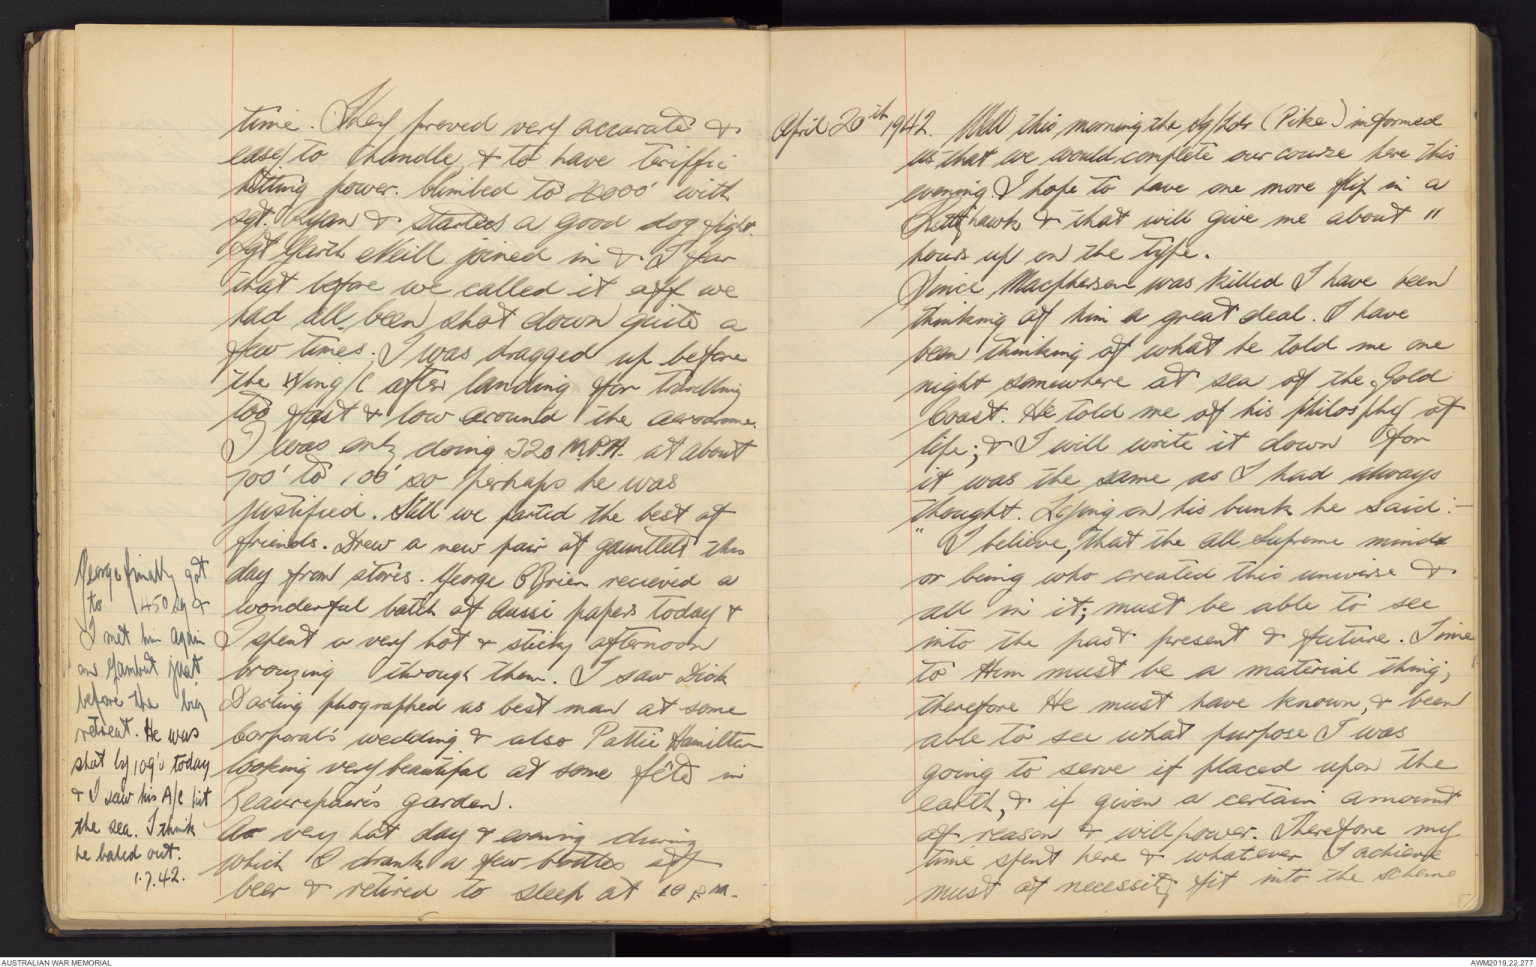 time. They proved very accurate &
easy to handle, & to have teriffic
hitting power. Climbed to 20000' with
sgt. Ryan & started a good dog fight.
Sgt Garth Neill joined in & I fear
that before we called it off we
had all been shot down quite a
few times. I was dragged up before
the Wing/C after landing for travelling
too fast & low around the aerodrome.
I was only doing 320 M.P.H. at about
700' to 100' so perhaps he was
justified. Still we parted the best of
friends. Drew a new pair of gauntlets this
day from stores. George O'Brien recieved a
wonderful batch of Aussi papers today &
I spent a very hot & sticky afternoon
browzing through them. I saw Dick
Darling phographed as best man at some
Corporal's wedding & also Pattie Hamilton
looking very beautiful at some fête in
Beaurepaire's garden.
A very hot day & evening during
which I drank a few bottles of
beer & retired to sleep at 10 p.m.
George finally got
to 450 Sq &
I met him again
on Gambut just
before the big
retreat. He was
shot by 109's today
& I saw his A/C hit
the sea. I think
he baled out.
1.7.42.
April 20th 1942. Well this morning the Sq/Ldr (Pike) informed
us that we would complete our course here this
evening. I hope to have one more flip in a
Kittyhawk & that will give me about 11
hours up on the type.
Since Macpherson was killed I have been
thinking of him a great deal. I have
been thinking of what he told me one
night somewhere at sea of the Gold
Coast. He told me of his philosphy of
life; & I will write it down for
it was the same as I had always
thought. Lying on his bunk he said:-
"I believe, that the all Supreme mind
or being who created this unverse &
all in it; must be able to see
into the past present & future. Time
to Him must be a material thing;
therefore He must have known, & been
able to see what purpose I was
going to serve if placed upon the
earth, & if given a certain amount
of reason & willpower. Therefore my
time spent here & whatever I achieve
must of necessity fit into the scheme
AUSTRALIAN WAR MEMORIAL
AWM2019.22.277